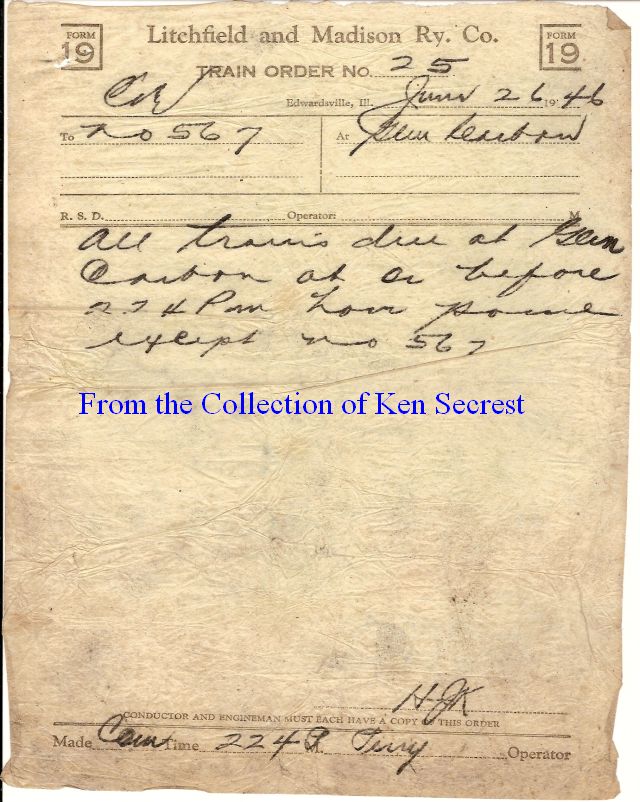 FORM 19 Litchfield and Madison Ry. Co. FORM 19
TRAIN ORDER NO. 25
Edwardsville, Ill. June 26 1946
To No 567 At Glen Carbon
R. S. D. Operator: M
All trains due at Glen
Carbon at or before
224 Pm have passed
except no 567
From the Collection of Ken Secrest
HJK
CONDUCTOR AND ENGINEMAN MUST EACH HAVE A COPY OF THIS ORDER
Made Com Time 224 P M. Terry Operator